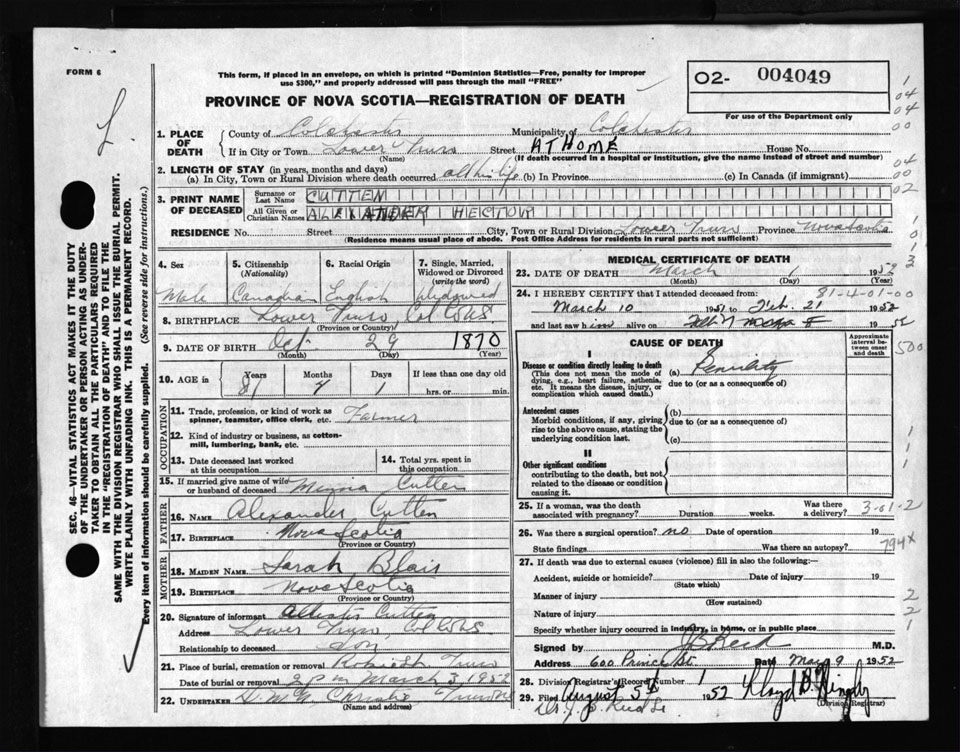 FORM 6
This form, if placed in an envelope, on which is printed "Dominion Statistics—Free, penalty for improper
use $300," and properly addressed will pass through the mail "FREE"
02- 004049
PROVINCE OF NOVA SCOTIA—REGISTRATION OF DEATH
For use of the Department only
1. PLACE OF DEATH
County of Colchester Municipality of Colchester
If in City or Town Lower Truro Street AT HOME House No.
(Name) (If death occurred in a hospital or institution, give the name instead of street and number)
2. LENGTH OF STAY (in years, months and days)
(a) In City, Town or Rural Division where death occurred all his life (b) In Province (c) In Canada (if immigrant)
3. PRINT NAME OF DECEASED
Surname or Last Name CUTTEN
All Given or Christian Names ALEXANDER HECTOR
RESIDENCE No. Street City, Town or Rural Division Lower Truro Province Nova Scotia
(Residence means usual place of abode. Post Office Address for residents in rural parts not sufficient)
4. Sex Male
5. Citizenship (Nationality) Canadian
6. Racial Origin English
7. Single, Married, Widowed or Divorced (write the word) Widowed
8. BIRTHPLACE Lower Truro, Col Co NS
(Province or Country)
9. DATE OF BIRTH Oct 29 1870
(Month) (Day) (Year)
10. AGE in Years Months Days If less than one day old
81 1 hrs. or min.
OCCUPATION
11. Trade, profession, or kind of work as spinner, teamster, office clerk, etc. Farmer
12. Kind of industry or business, as cotton-mill, lumbering, bank, etc.
13. Date deceased last worked at this occupation
14. Total yrs. spent in this occupation
15. If married give name of wife or husband of deceased Cutten
FATHER
16. NAME Alexander Cutten
17. BIRTHPLACE Nova Scotia
(Province or Country)
MOTHER
18. MAIDEN NAME Sarah Blair
19. BIRTHPLACE Nova Scotia
(Province or Country)
20. Signature of informant Cutten
Address Lower Truro, Col Co NS
Relationship to deceased Son
21. Place of burial, cremation or removal Truro
Date of burial or removal 2 pm March 3, 1952
22. UNDERTAKER Christie Truro NS
(Name and address)
MEDICAL CERTIFICATE OF DEATH
23. DATE OF DEATH March 1 1952
(Month) (Day)
81-4-01-00
24. I HEREBY CERTIFY that I attended deceased from:
March 10 1951 to Feb. 21 1952
and last saw him alive on 1952
CAUSE OF DEATH
Approximate interval between onset and death
I
Disease or condition directly leading to death
(This does not mean the mode of dying, e.g., heart failure, asthenia, etc. It means the disease, injury, or complication which caused death.)
(a) Senility
due to (or as a consequence of)
Antecedent causes
Morbid conditions, if any, giving rise to the above cause, stating the underlying condition last.
(b)
due to (or as a consequence of)
(c)
II
Other significant conditions
contributing to the death, but not related to the disease or condition causing it.
25. If a woman, was the death associated with pregnancy? Duration weeks. Was there a delivery?
3-01-2
26. Was there a surgical operation? no Date of operation 19
State findings Was there an autopsy?
794X
27. If death was due to external causes (violence) fill in also the following:—
Accident, suicide or homicide? Date of injury 19
(State which)
Manner of injury
(How sustained)
Nature of injury
Specify whether injury occurred in industry, in home, or in public place
Signed by J B Reid M.D.
Address 600 Prince St. Date Mar 9 1952
28. Division Registrar's Record Number 1
29. Filed August 5th 1952
(Division Registrar)
SEC. 46—VITAL STATISTICS ACT MAKES IT THE DUTY
OF THE UNDERTAKER OR PERSON ACTING AS UNDER-
TAKER TO OBTAIN ALL THE PARTICULARS REQUIRED
IN THE "REGISTRATION OF DEATH" AND TO FILE THE
SAME WITH THE DIVISION REGISTRAR WHO SHALL ISSUE THE BURIAL PERMIT.
WRITE PLAINLY WITH UNFADING INK. THIS IS A PERMANENT RECORD.
Every item of information should be carefully supplied. (See reverse side for instructions.)